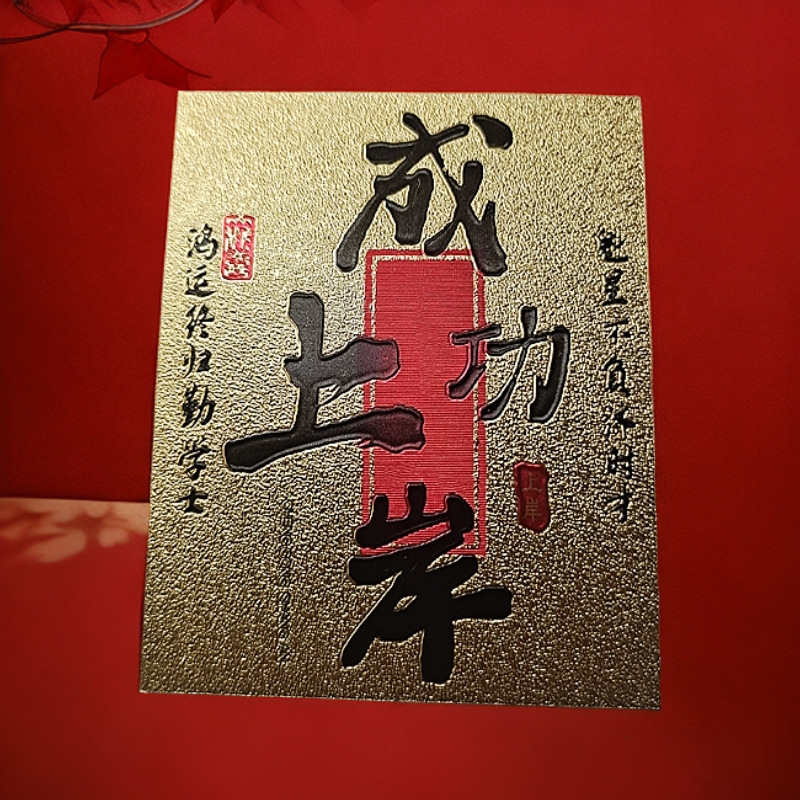 魁星不负怀时才
成功上岸
上岸
鸿运终归勤学士